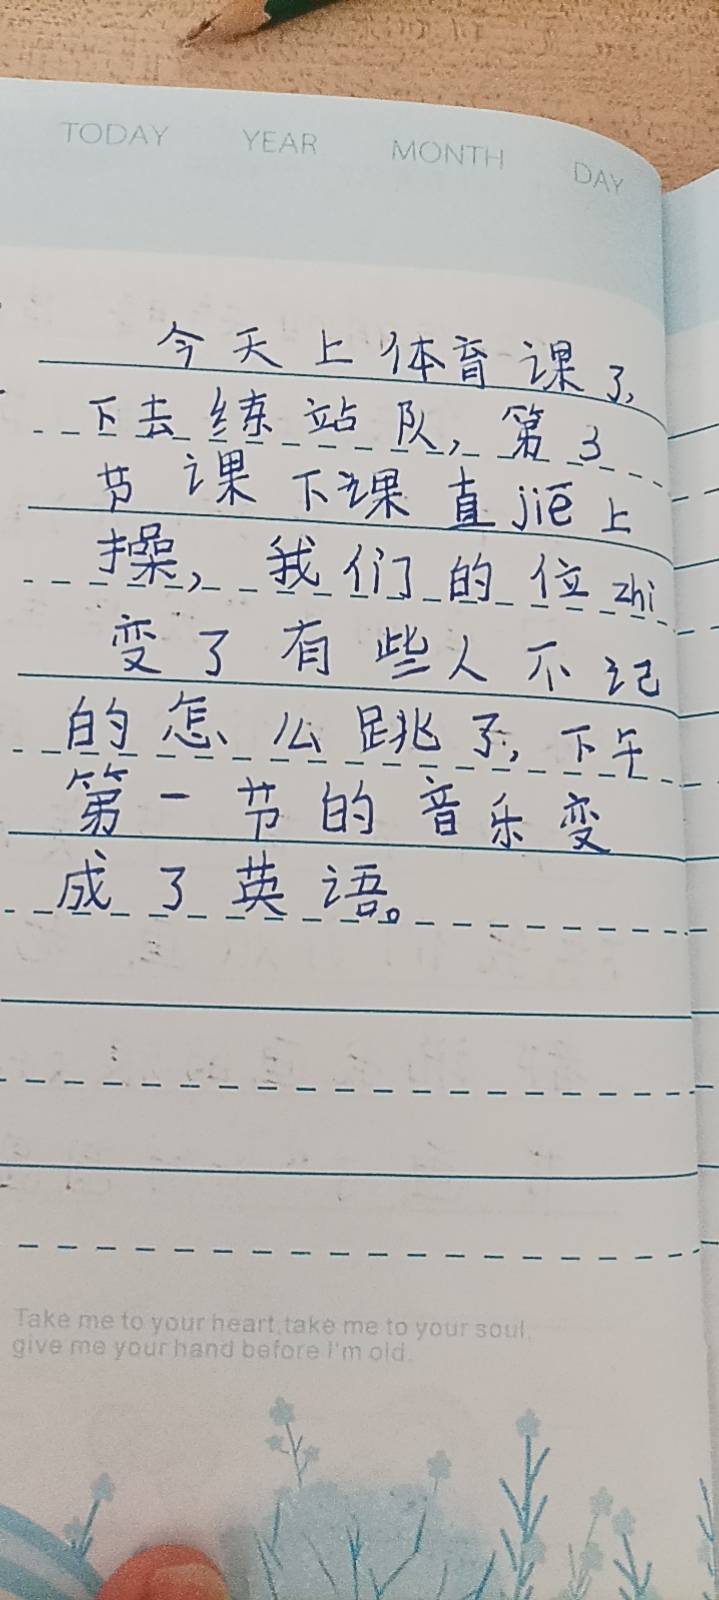 TODAY YEAR MONTH DAY
今天上体育课了,
下去练站队,第3
节课下课直jiē上
操,我们的位zhi
变了有些人不记
的怎么跳了,下午
第一节的音乐变
成了英语。
Take me to your heart,take me to your soul,
give me your hand before I'm old.